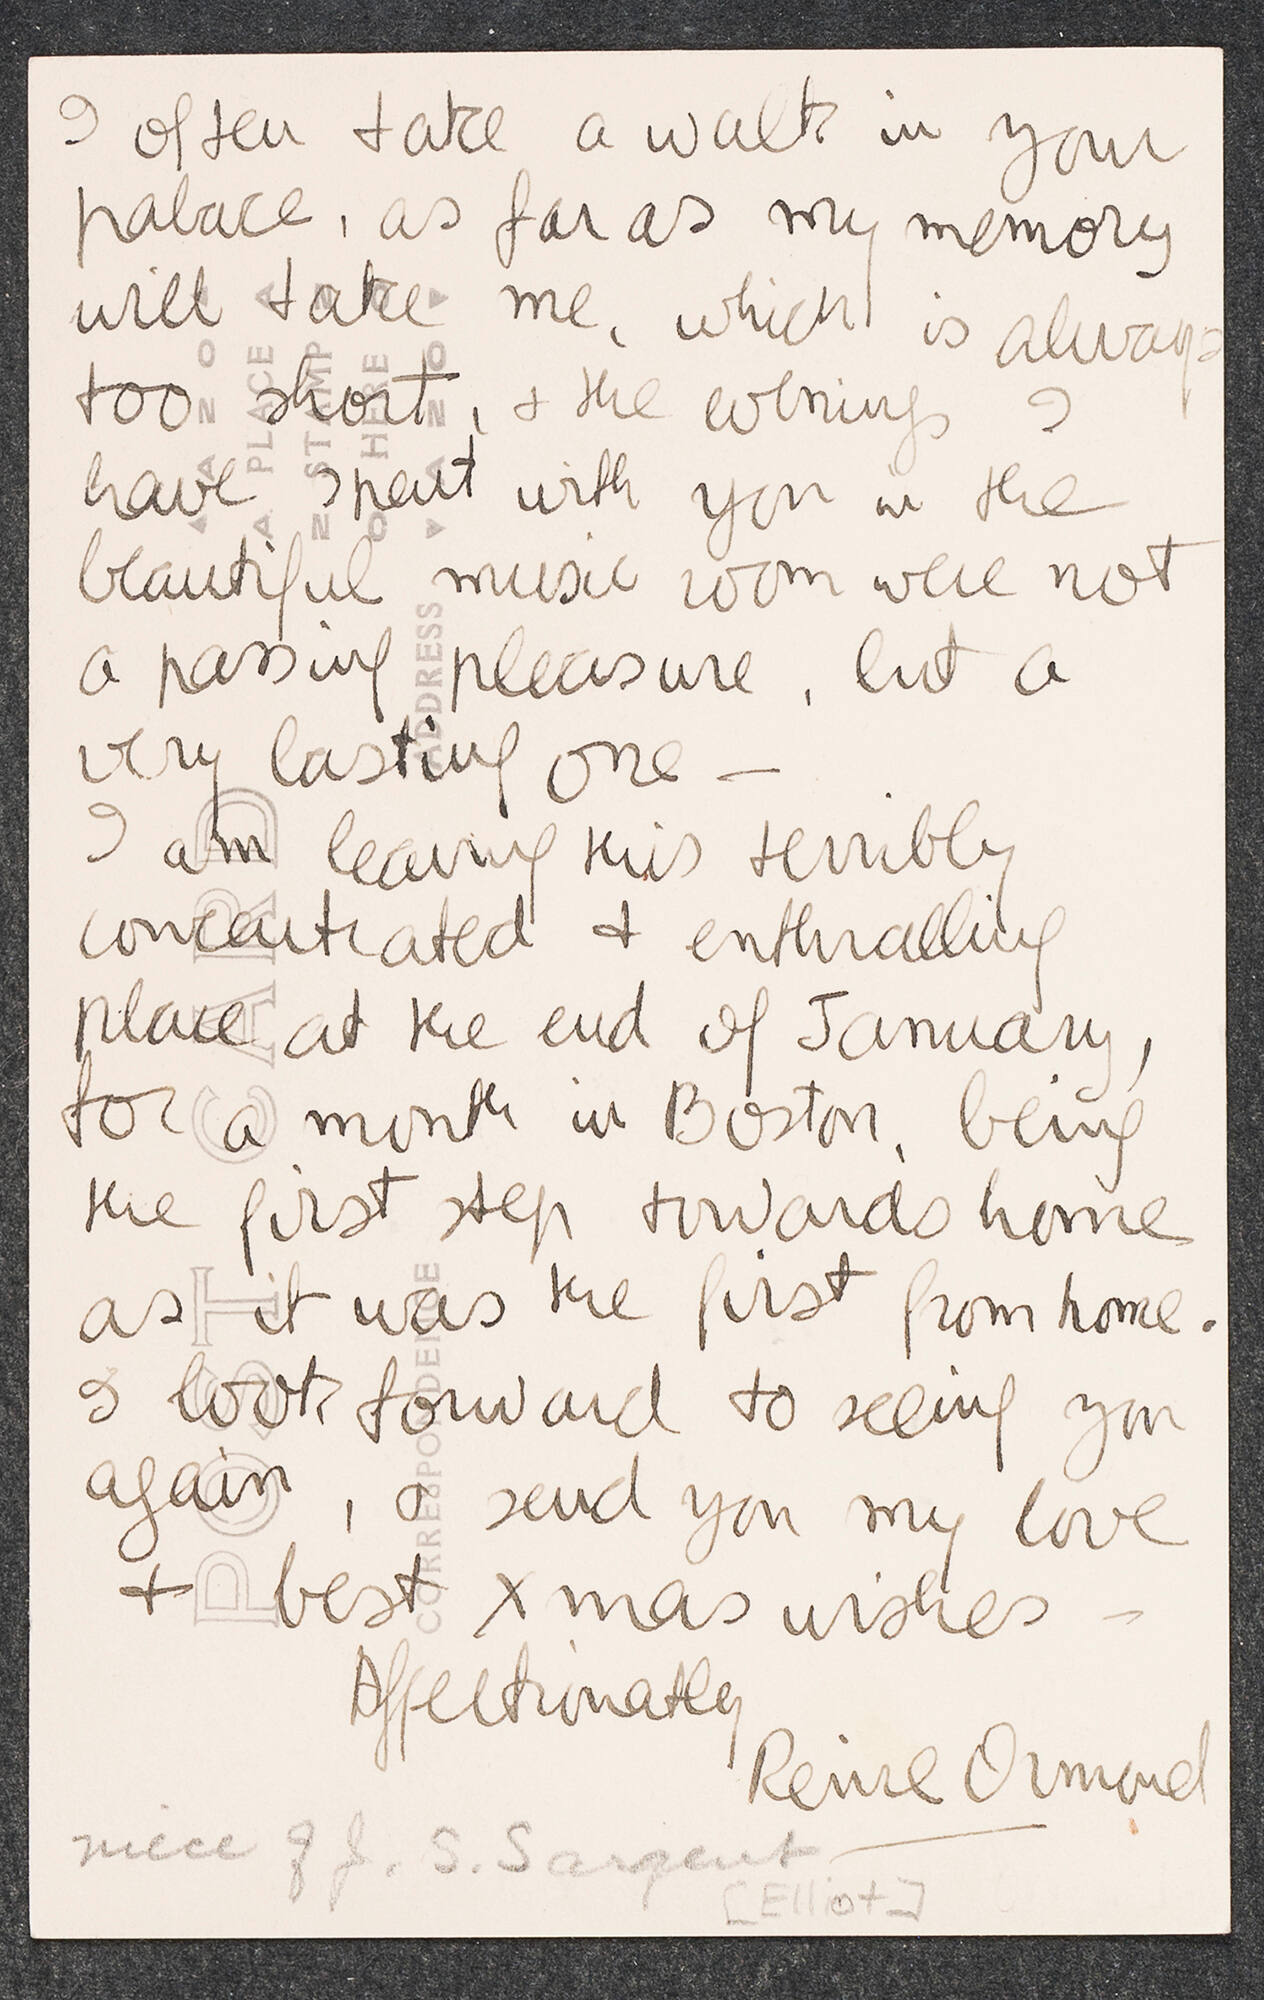 I often take a walk in your
palace, as far as my memory
will take me, which is always
too short, & the evenings I
have spent with you in the
beautiful music room were not
a passing pleasure, but a
very lasting one —
I am leaving this terribly
concentrated & enthralling
place at the end of January,
for a month in Boston, being
the first step towards home
as it was the first from home.
I look forward to seeing you
again, & send you my love
& best Xmas wishes —
Affectionately
Reine Ormond
niece of J. S. Sargent
[Elliot]
POST CARD
CORRESPONDENCE
ADDRESS
PLACE
STAMP
HERE
AZO